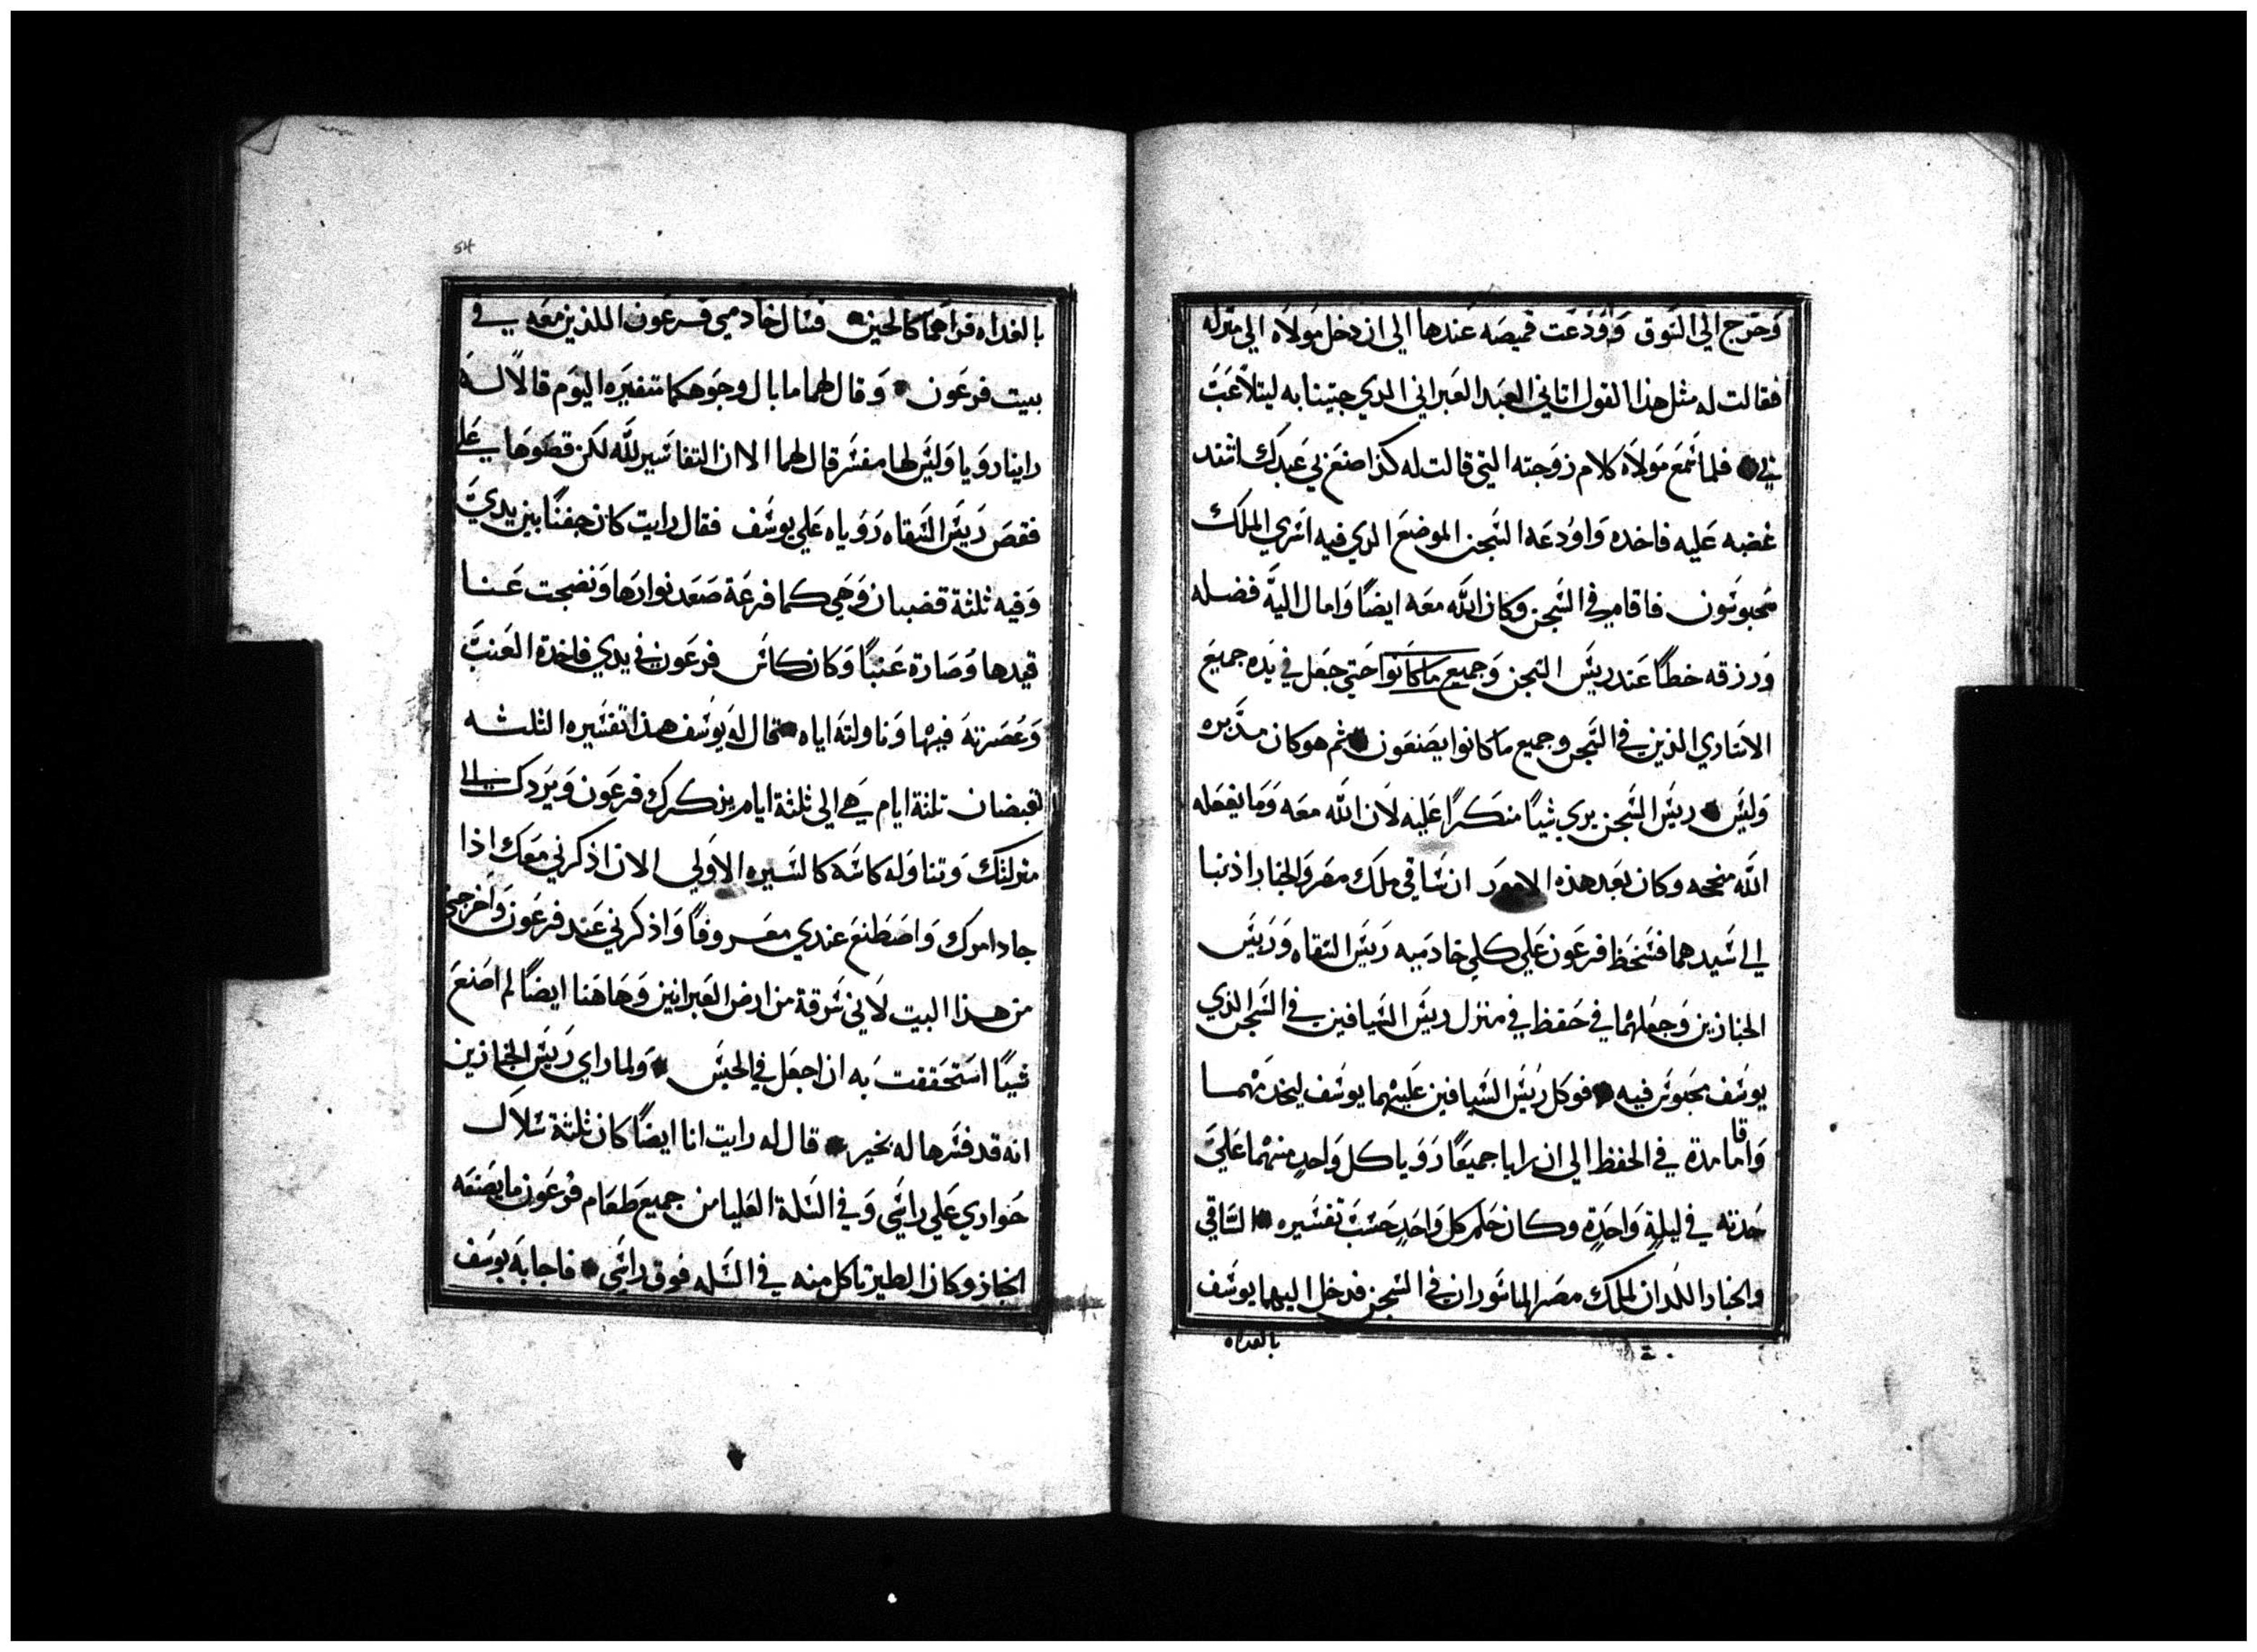 وَخرج الي السَوق وَاوَدَعَت قميصَه عَندها الي ان دخل مَولاه الي منزله
فقالت له مثل هذا القول اتاني العَبد العَبراني الدي جيتنا به ليتلاعَبَ
بي فلما سَمَع مَولاَه كلام زوَجته التي قالت له كذا صنعَ بي عَبدك اشتد
غضبه عَليه فاخده وَاوُدعَه السَجن الموضعَ الدي فيه اسَري الملك
محبوسَون فاقام في السَجن وكان اللَّه معَه ايضًا وَامال اليهَ فضله
وَرزقه خطاً عَند ريَسَ السَجن وَجميع ماكانوا حَتي جَعل في يَده جميعَ
الاسَاري الذين في السَجن وجميع ماكانوا يصَنعَون ثم هو كان مدَّبره
وَليَسَ ريَسَ السَجن يري شيًا منكرًا عَليه لاَن اللَّه معَه وَمَا يفعَله
اللَّه منجحه وكان بعَد هذه الامور ان سَاقي ملك مصَر وَالخباز اذنبا
الي سَيدهما فسَخظ فرعَون عَلي كلي خادمَيه رَيسَ السَقاه وَرَيسَ
الخبازين وَجعَلهُما في حَفظ في منزل ريسَ السَيافين في السَجن الذي
يوسَف مَحبوسَ فيه فوكل رَيسَ السَيافين عَليهما يوسَف ليخدَمْهما
وَاقاما مدة في الحفظ الي ان رايا جميعًا رَوَيا كل وَاحدٍ منهمُا عَليَ
حَدته في ليلةٍ وَاحَدٍة وكان حَلم كل وَاحَدٍ حَسَبَ تفسَيره السَاقي
والخباز اللَدان لملك مصَر الماسَوران في السَجن فدخل اليهما يوسَف
بالغداه
54
بالغداه فراَهما كالحين فسَال خادمي فرعَون اللذين معَه في
بيت فرعَون وَقال لهما ما بال وجوَهكما متغيَره اليوَم قالاً له
راينا روَيا وَليَسَ لها مفسَر قال لهما الا ان التفاسَير للَّه لكن قصَوهَا عَلي
فقصَ رَيسَ السَقاه رَوَياه عَلي يوسَف فقال رايت كان جفنًا بين يديَّ
وَفيه ثلثة قضبان وَهَي كما فرعَة صَعَد نوارهَا وَنضجت عَنا
قيدها وَصَارة عَنبًا وَكان كاسَ فرعَون في يدي فاخدة العَنبَ
وَعَصَرته فيهَا وَناولتهَ اياه فقال لهَ يوسَف هذا تفسَيره الثلثه
لقبضان ثلثة ايام هَي الي ثلثة ايام يذكرك فرعَون وَيَردك الي
منزلتك وَتناوَله كاسَه كالسَيره الاوَلي الا ان اذكرني معَك اذا
جاد امرك وَاصَطنعَ عندي معَروفاً وَاذكرني عَند فرعَون وَاخرجني
من هذا البيت لاَني سَرقة من ارض العَبرانين وَهَاهَنا ايضًا لم اصَنعَ
شيًا اسَتحَققت بَه ان اجعَل في الحبسَ وَلما راي رَيسَ الخبازين
انه قد فسَرها له بخير قال له رايت انا ايضًا كان ثلثة سَلال
حَواري عَلي راسَي وَفي السَلة العَليا من جميعَ طعَام فرعَون ما يصَنعَه
الخباز وكان الطير تاكل منه في السَله فوق راسَي فاجابهَ يوسَف